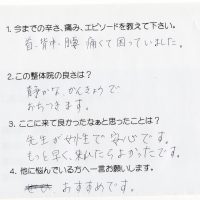 1. 今までの辛さ、痛み、エピソードを教えて下さい。
首、背中、腰 痛くて困っていました。
2.この整体院の良さは？
静かな、かんきょうで
おちつきます。
3. ここに来て良かったなぁと思ったことは？
先生が女性で安心です。
もっと早く来れたらよかったです。
4. 他に悩んでいる方へ一言お願いします。
おすすめです。